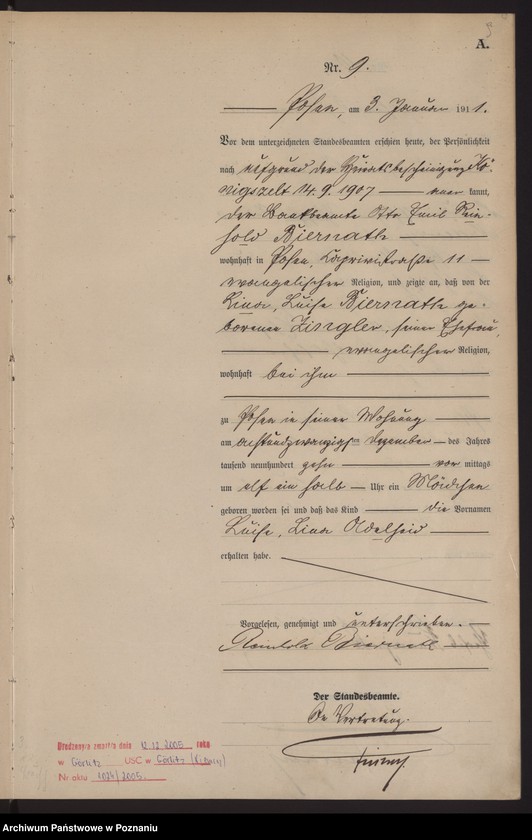 A.
Nr. 9.
Posen, am 3. Januar 1911.
Vor dem unterzeichneten Standesbeamten erschien heute, der Persönlichkeit
nach auf Grund der Heiratsbescheinigung Kö-
nigszelt 14.9.1907 kannt,
der Bankbeamte Otto Emil Rein-
hold Biernath
wohnhaft in Posen, Caprivistraße 11
evangelischer Religion, und zeigte an, daß von der
Lina, Luise Biernath ge-
borenen Zingler, seiner Ehefrau,
evangelischer Religion,
wohnhaft bei ihm
zu Posen in seiner Wohnung
am achtundzwanzigsten Dezember des Jahres
tausend neunhundert zehn vor mittags
um elf ein halb Uhr ein Mädchen
geboren worden sei und daß das Kind die Vornamen
Luise, Lina Adelheid
erhalten habe.
Vorgelesen, genehmigt und unterschrieben.
Reinhold Biernath
Der Standesbeamte.
In Vertretung.
12.12.2005 roku
w Görlitz USC w Görlitz
Nr. aktu 1024/2005.
Archiwum Państwowe w Poznaniu